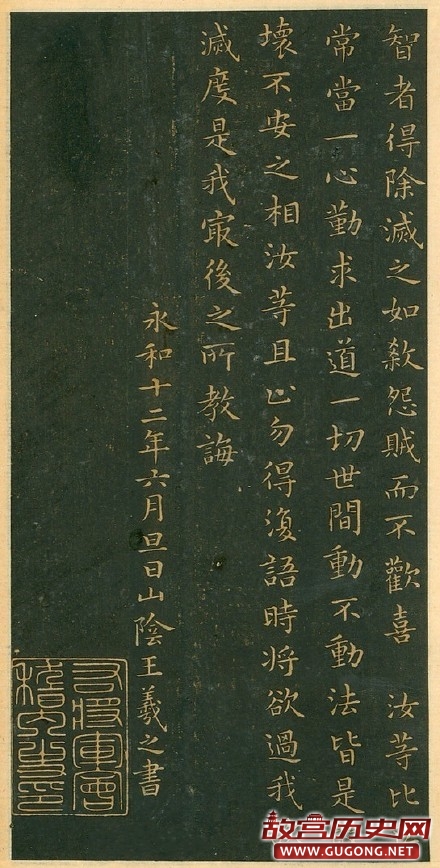 智者得除滅之如殺怨賊而不歡喜 汝等比
常當一心勤求出道一切世間動不動法皆是
壞不安之相汝等且止勿得復語時将欲過我
滅度是我冣後之所教誨
永和十二年六月旦日山陰王羲之書
右將軍會
稽內史印
故宫历史网
WWW.GUGONG.NET